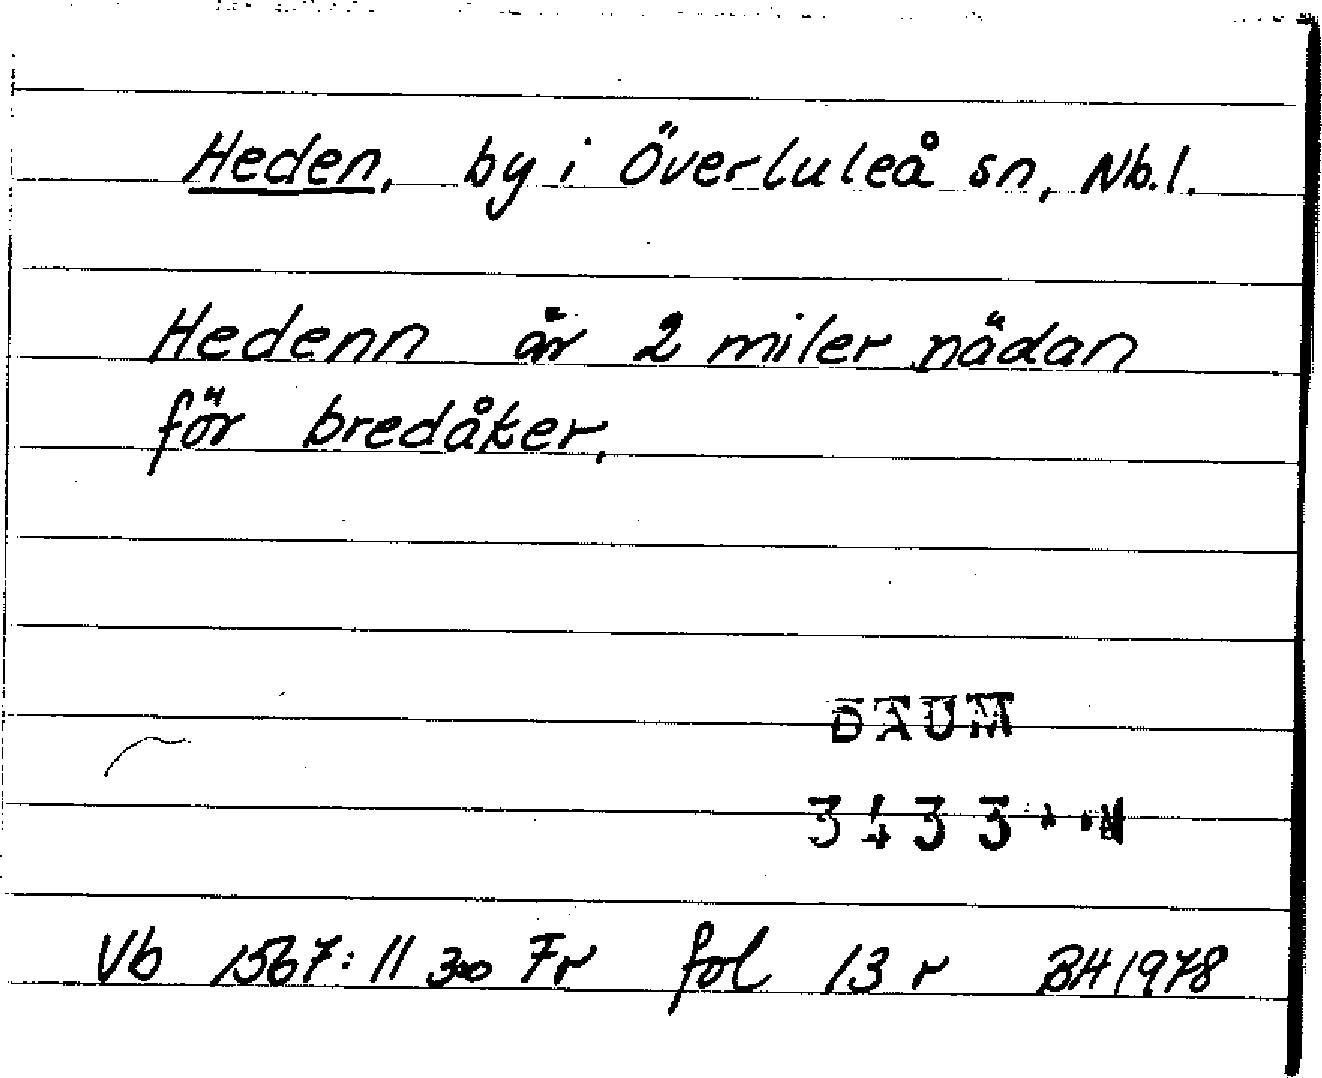 Heden, by i Överluleå sn, Nb.l.
Hedenn är 2 miler nädan
för bredåker.
DAUM
3433
Vb 1567:11 300 Fr fol 13 r BH 1978